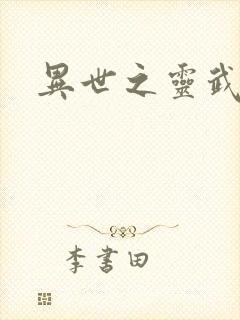 異世之靈武
李書田